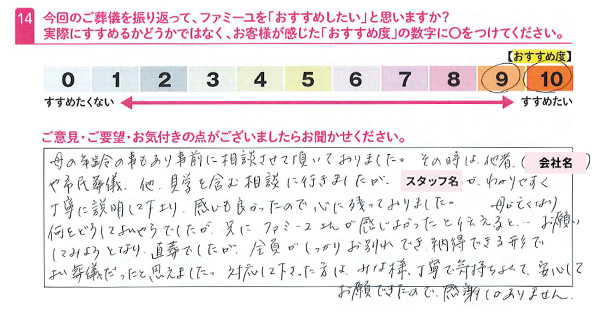 14 今回のご葬儀を振り返って、ファミーユを「おすすめしたい」と思いますか?
実際にすすめるかどうかではなく、お客様が感じた「おすすめ度」の数字に〇をつけてください。
【おすすめ度】
0 1 2 3 4 5 6 7 8 9 10
すすめたくない すすめたい
ご意見・ご要望・お気付きの点がございましたらお聞かせください。
母の年齢の事もあり事前に相談させて頂いておりました。その時は、他者、(会社名)
や市民葬儀、他、見学を含む相談に行きましたが、スタッフ名が、わかりやすく
丁寧に説明して下さり、感じも良かったので心に残っておりました。母が亡くなり
何をどうしてよいやらでしたが、兄にファミーユさんが感じよかったと伝えると、お願い
してみようとなり、直葬でしたが、全員がしっかりお別れでき納得できる形で
よい葬儀だったと思えました。対応して下さった方は、みな様、丁寧で気持ちよくて、安心して
お願いできたので、感謝しかありません。